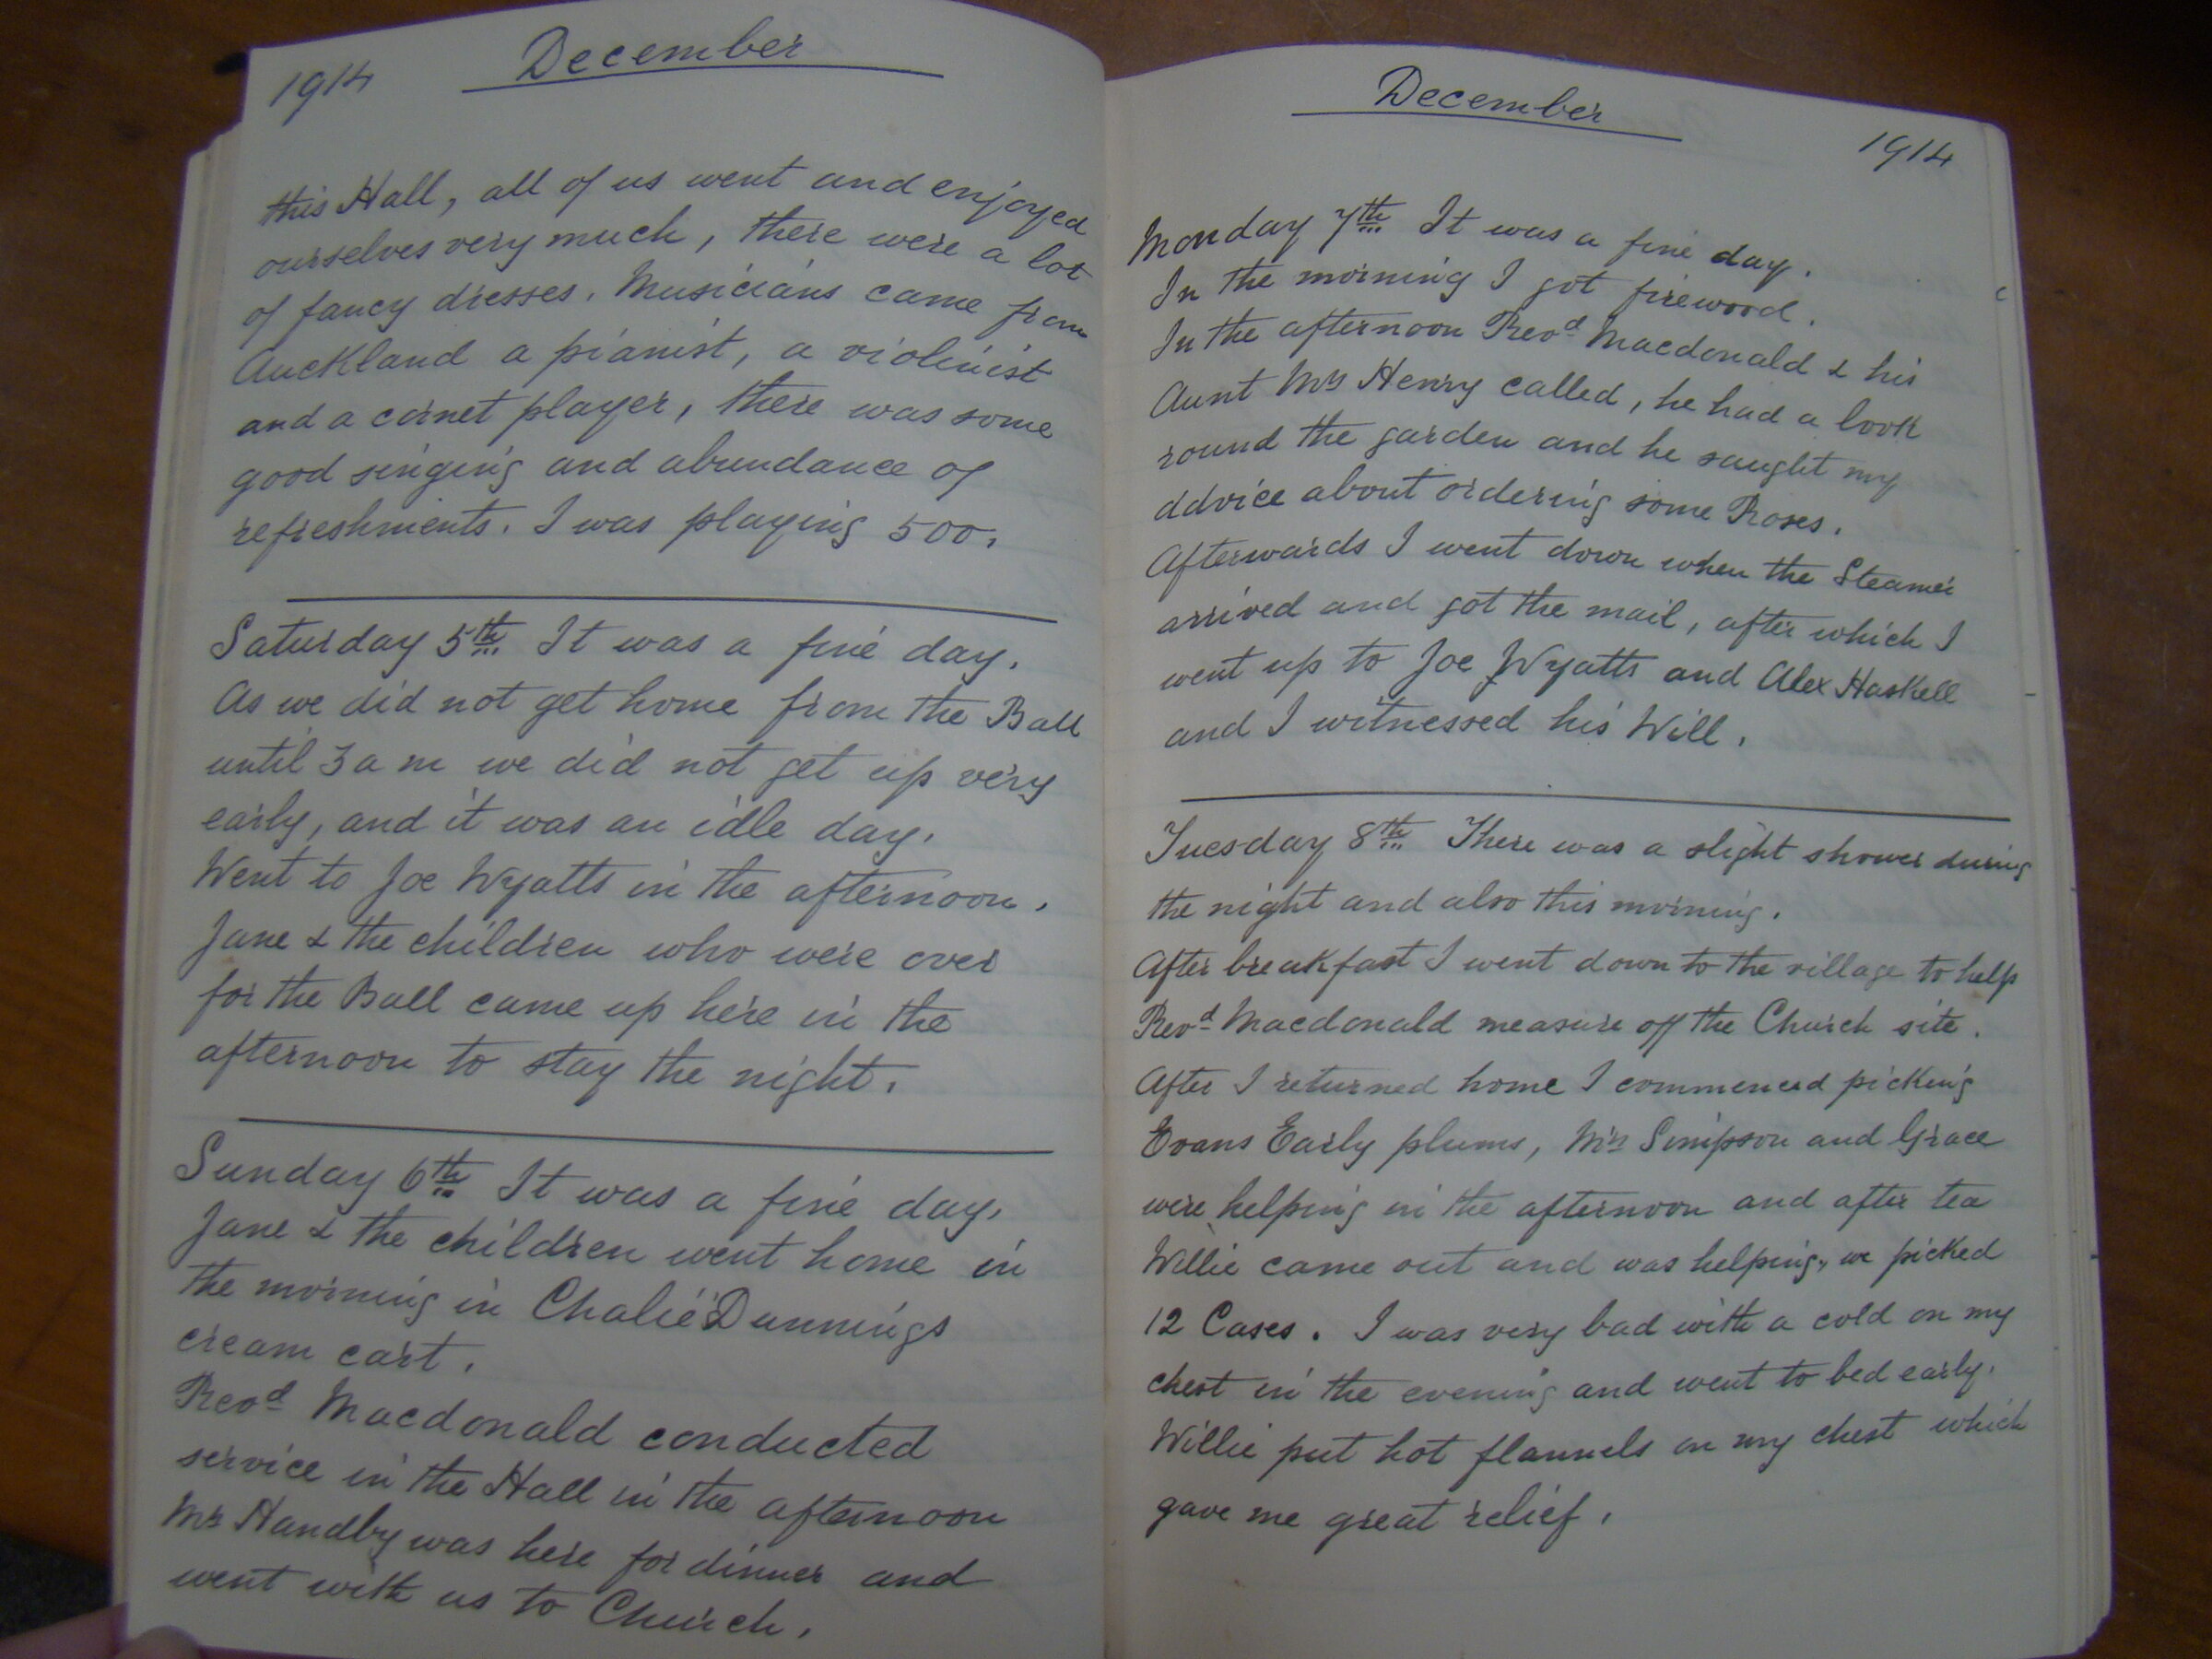 1914
December
this Hall, all of us went and enjoyed
ourselves very much, there were a lot
of fancy dresses. Musicians came from
Auckland a pianist, a violinist
and a cornet player, there was some
good singing and abundance of
refreshments. I was playing 500.
Saturday 5th It was a fine day.
As we did not get home from the Ball
until 3 a m we did not get up very
early, and it was an idle day.
Went to Joe Wyatts in the afternoon.
Jane & the children who were over
for the Ball came up here in the
afternoon to stay the night.
Sunday 6th It was a fine day,
Jane & the children went home in
the morning in Chalie Dunnings
cream cart.
Revd Macdonald conducted
service in the Hall in the afternoon
Mr Handby was here for dinner and
went with us to Church.
December
1914
Monday 7th It was a fine day.
In the morning I got firewood.
In the afternoon Revd Macdonald & his
Aunt Mrs Henry called, he had a look
round the garden and he saught my
ddvice about ordering some Roses.
Afterwards I went down when the Steamer
arrived and got the mail, after which I
went up to Joe Wyatts and Alex Haskell
and I witnessed his Will.
Tuesday 8th There was a slight shower during
the night and also this morning.
After breakfast I went down to the village to help
Revd Macdonald measure off the Church site.
After I returned home I commenced picking
Evans Early plums, Mrs Simpson and Grace
were helping in the afternoon and after tea
Willie came out and was helping, we picked
12 Cases. I was very bad with a cold on my
chest in the evening and went to bed early.
Willie put hot flannels on my chest which
gave me great relief.